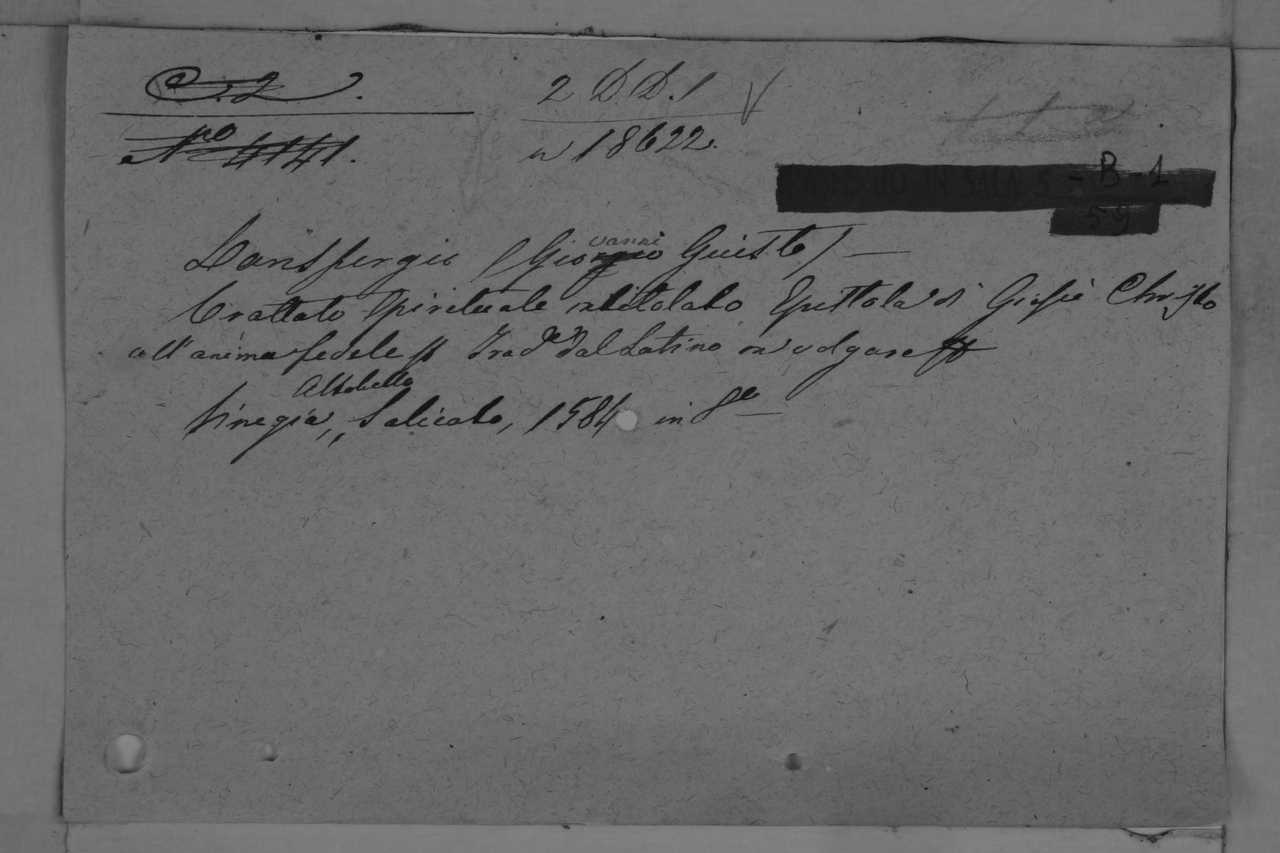 C. 2.
2 D. D. 1
Nro 4141.
n 18622.
- B - 1
59
Lanspergio (Giorgio vanni Guisto) —
Trattato spirituale intitolato Epistola di Giesù Christo
all'anima fedele Trad. dal Latino in volgare
Altobello
Vinegia, Salicato, 1584 in 8o —